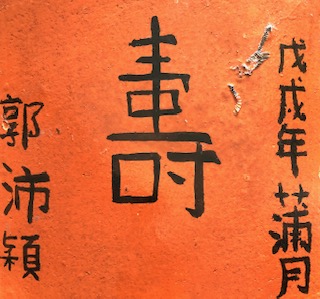 戊戌年蒲月
壽
郭沛穎